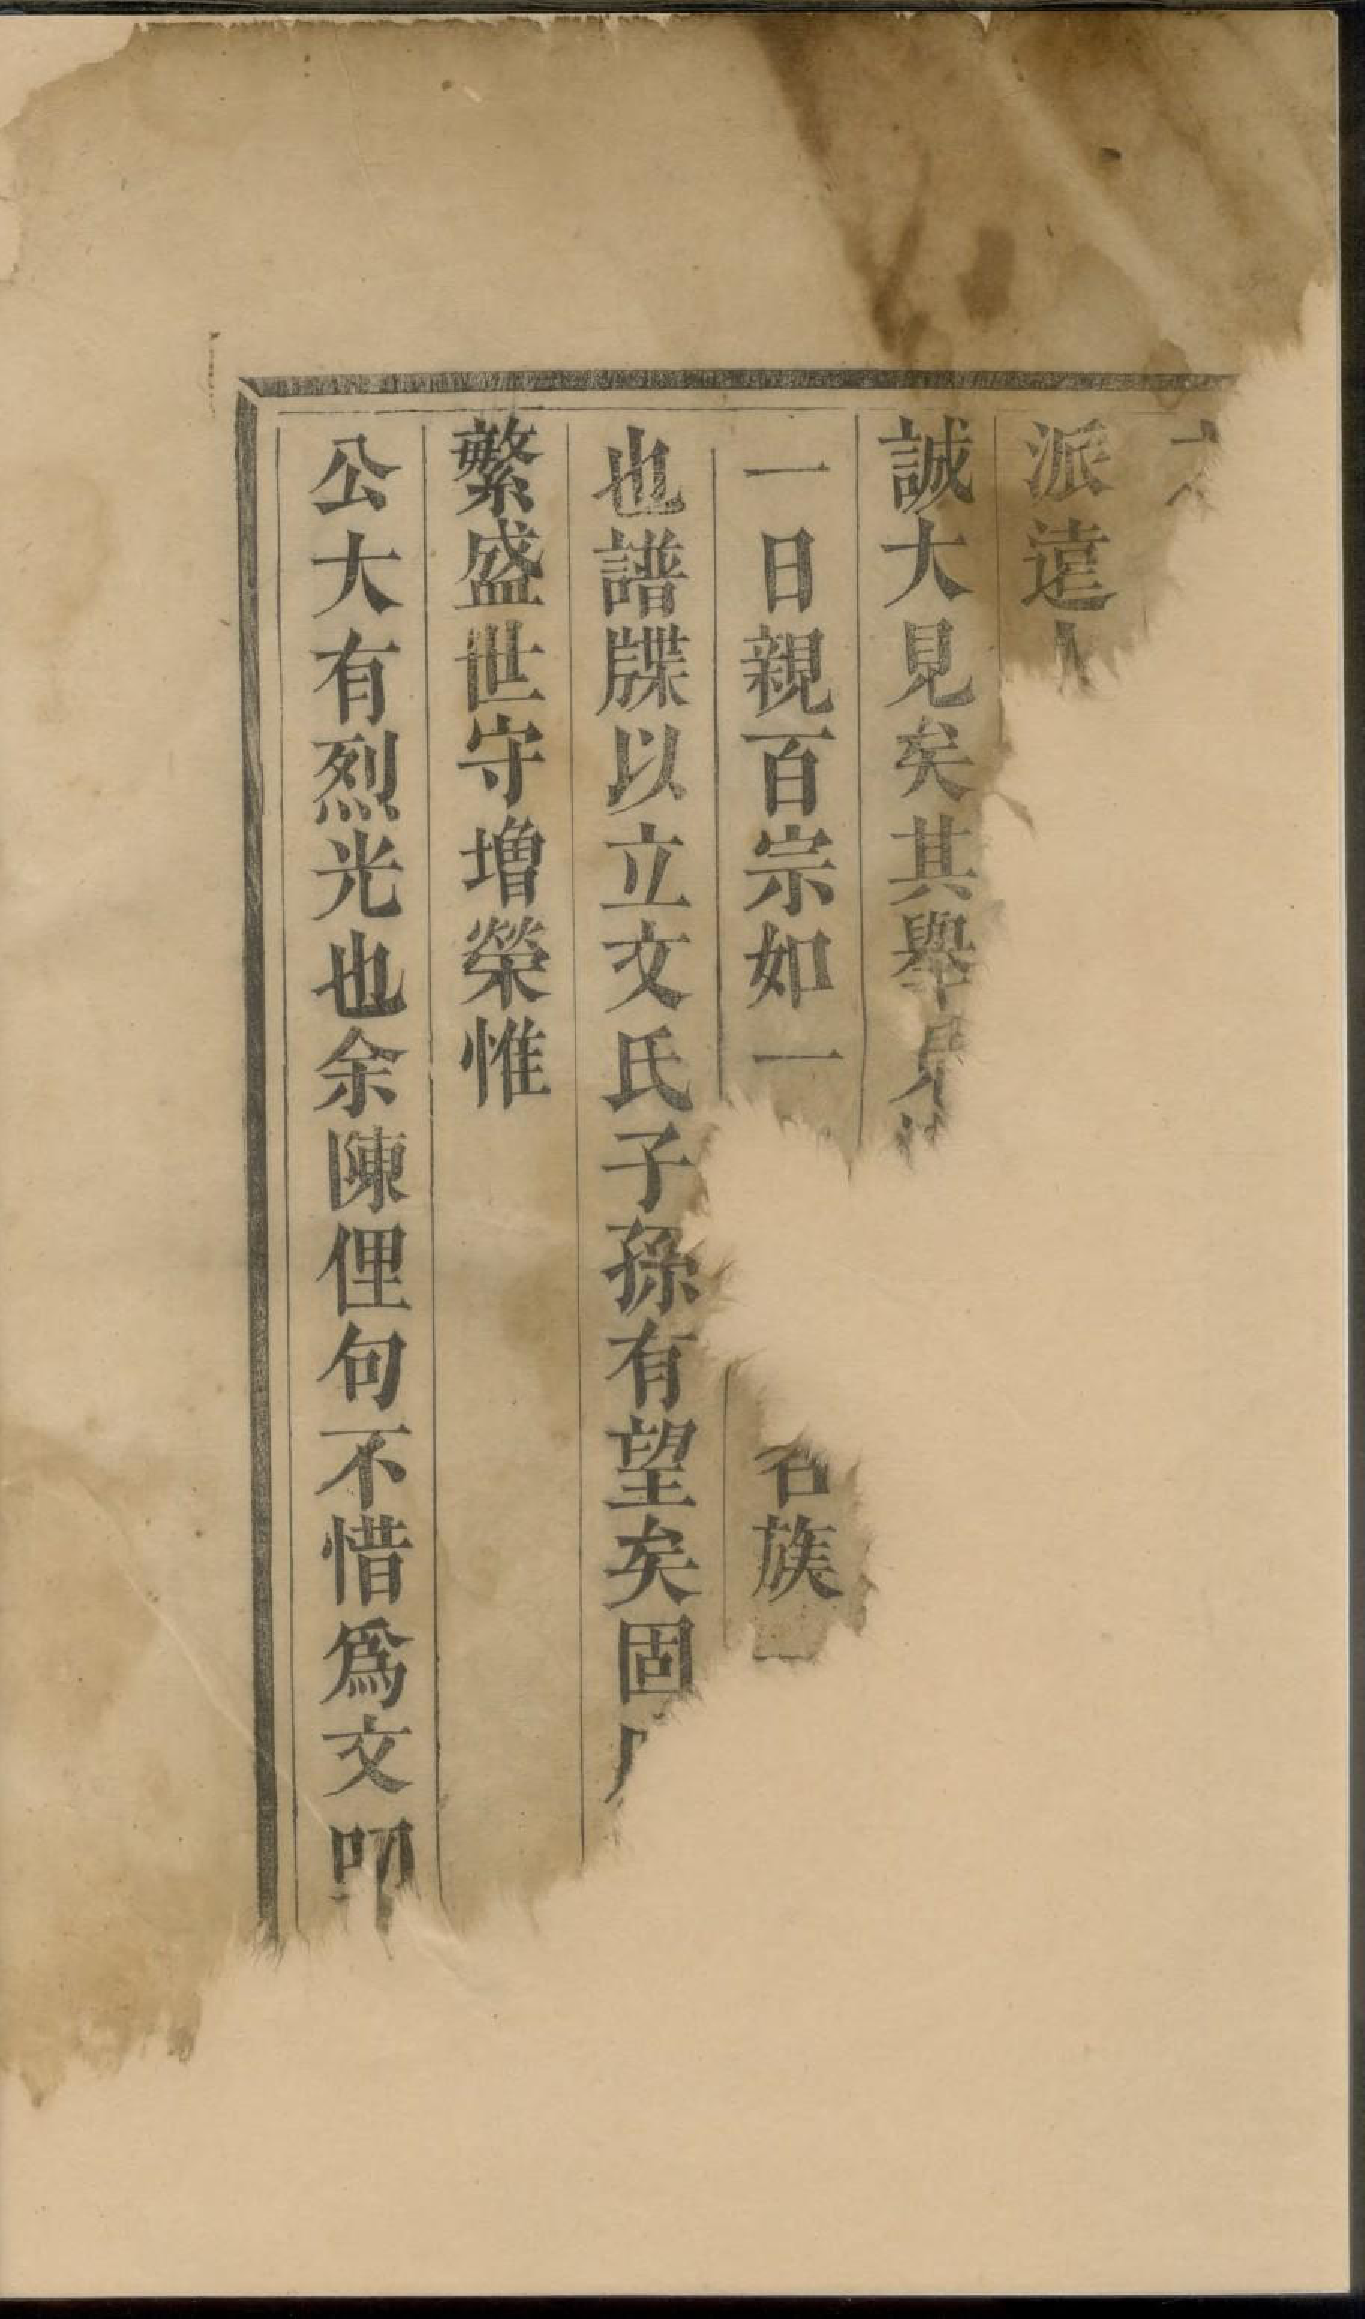 派遠
誠大見矣其舉
一日親百宗如一
名族
也譜牒以立文氏子孫有望矣固
繁盛世守增榮惟
公大有烈光也余陳俚句不惜爲文